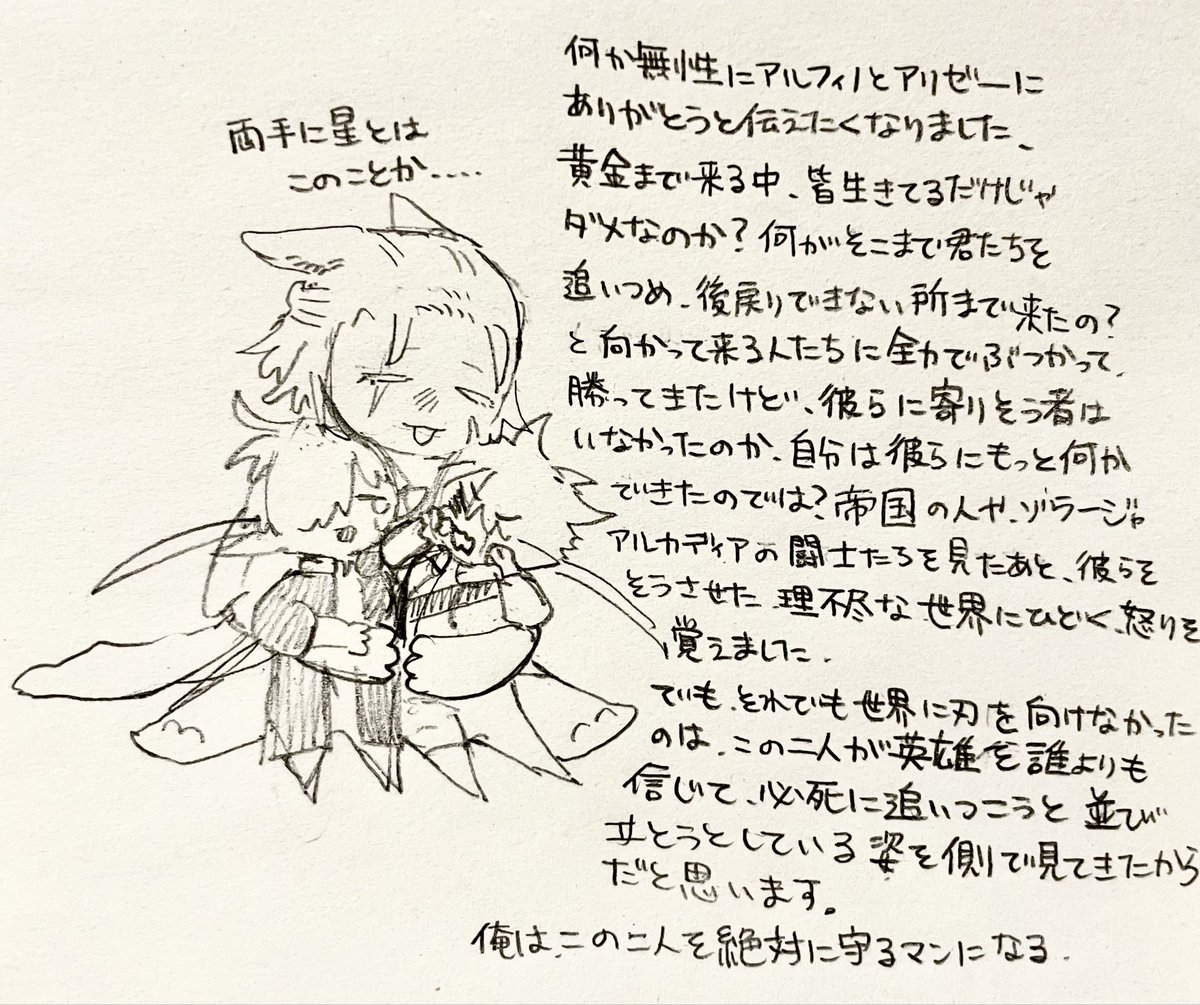 両手に星とは
このことか.....
何か無性にアルフィノとアリゼーに
ありがとうと伝えたくなりました、
黄金まで来る中、皆生きてるだけじゃ
ダメなのか？何がそこまで君たちを
追いつめ、後戻りできない所まで来たの？
と向かって来る人たちに全力でぶつかって、
勝ってきたけど、彼らに寄りそう者は
いなかったのか、自分は彼らにもっと何か
できたのでは？帝国の人や、ゾラージャ
アルカディアの闘士たちを見たあと、彼らを
そうさせた理不尽な世界にひどく、怒りを
覚えました.
でも、それでも世界に刃を向けなかった
のは、この二人が英雄を誰よりも
信じて、必死に追いつこうと並び
立とうとしている姿を側で見てきたから
だと思います。
俺は、この二人を絶対に守るマンになる.